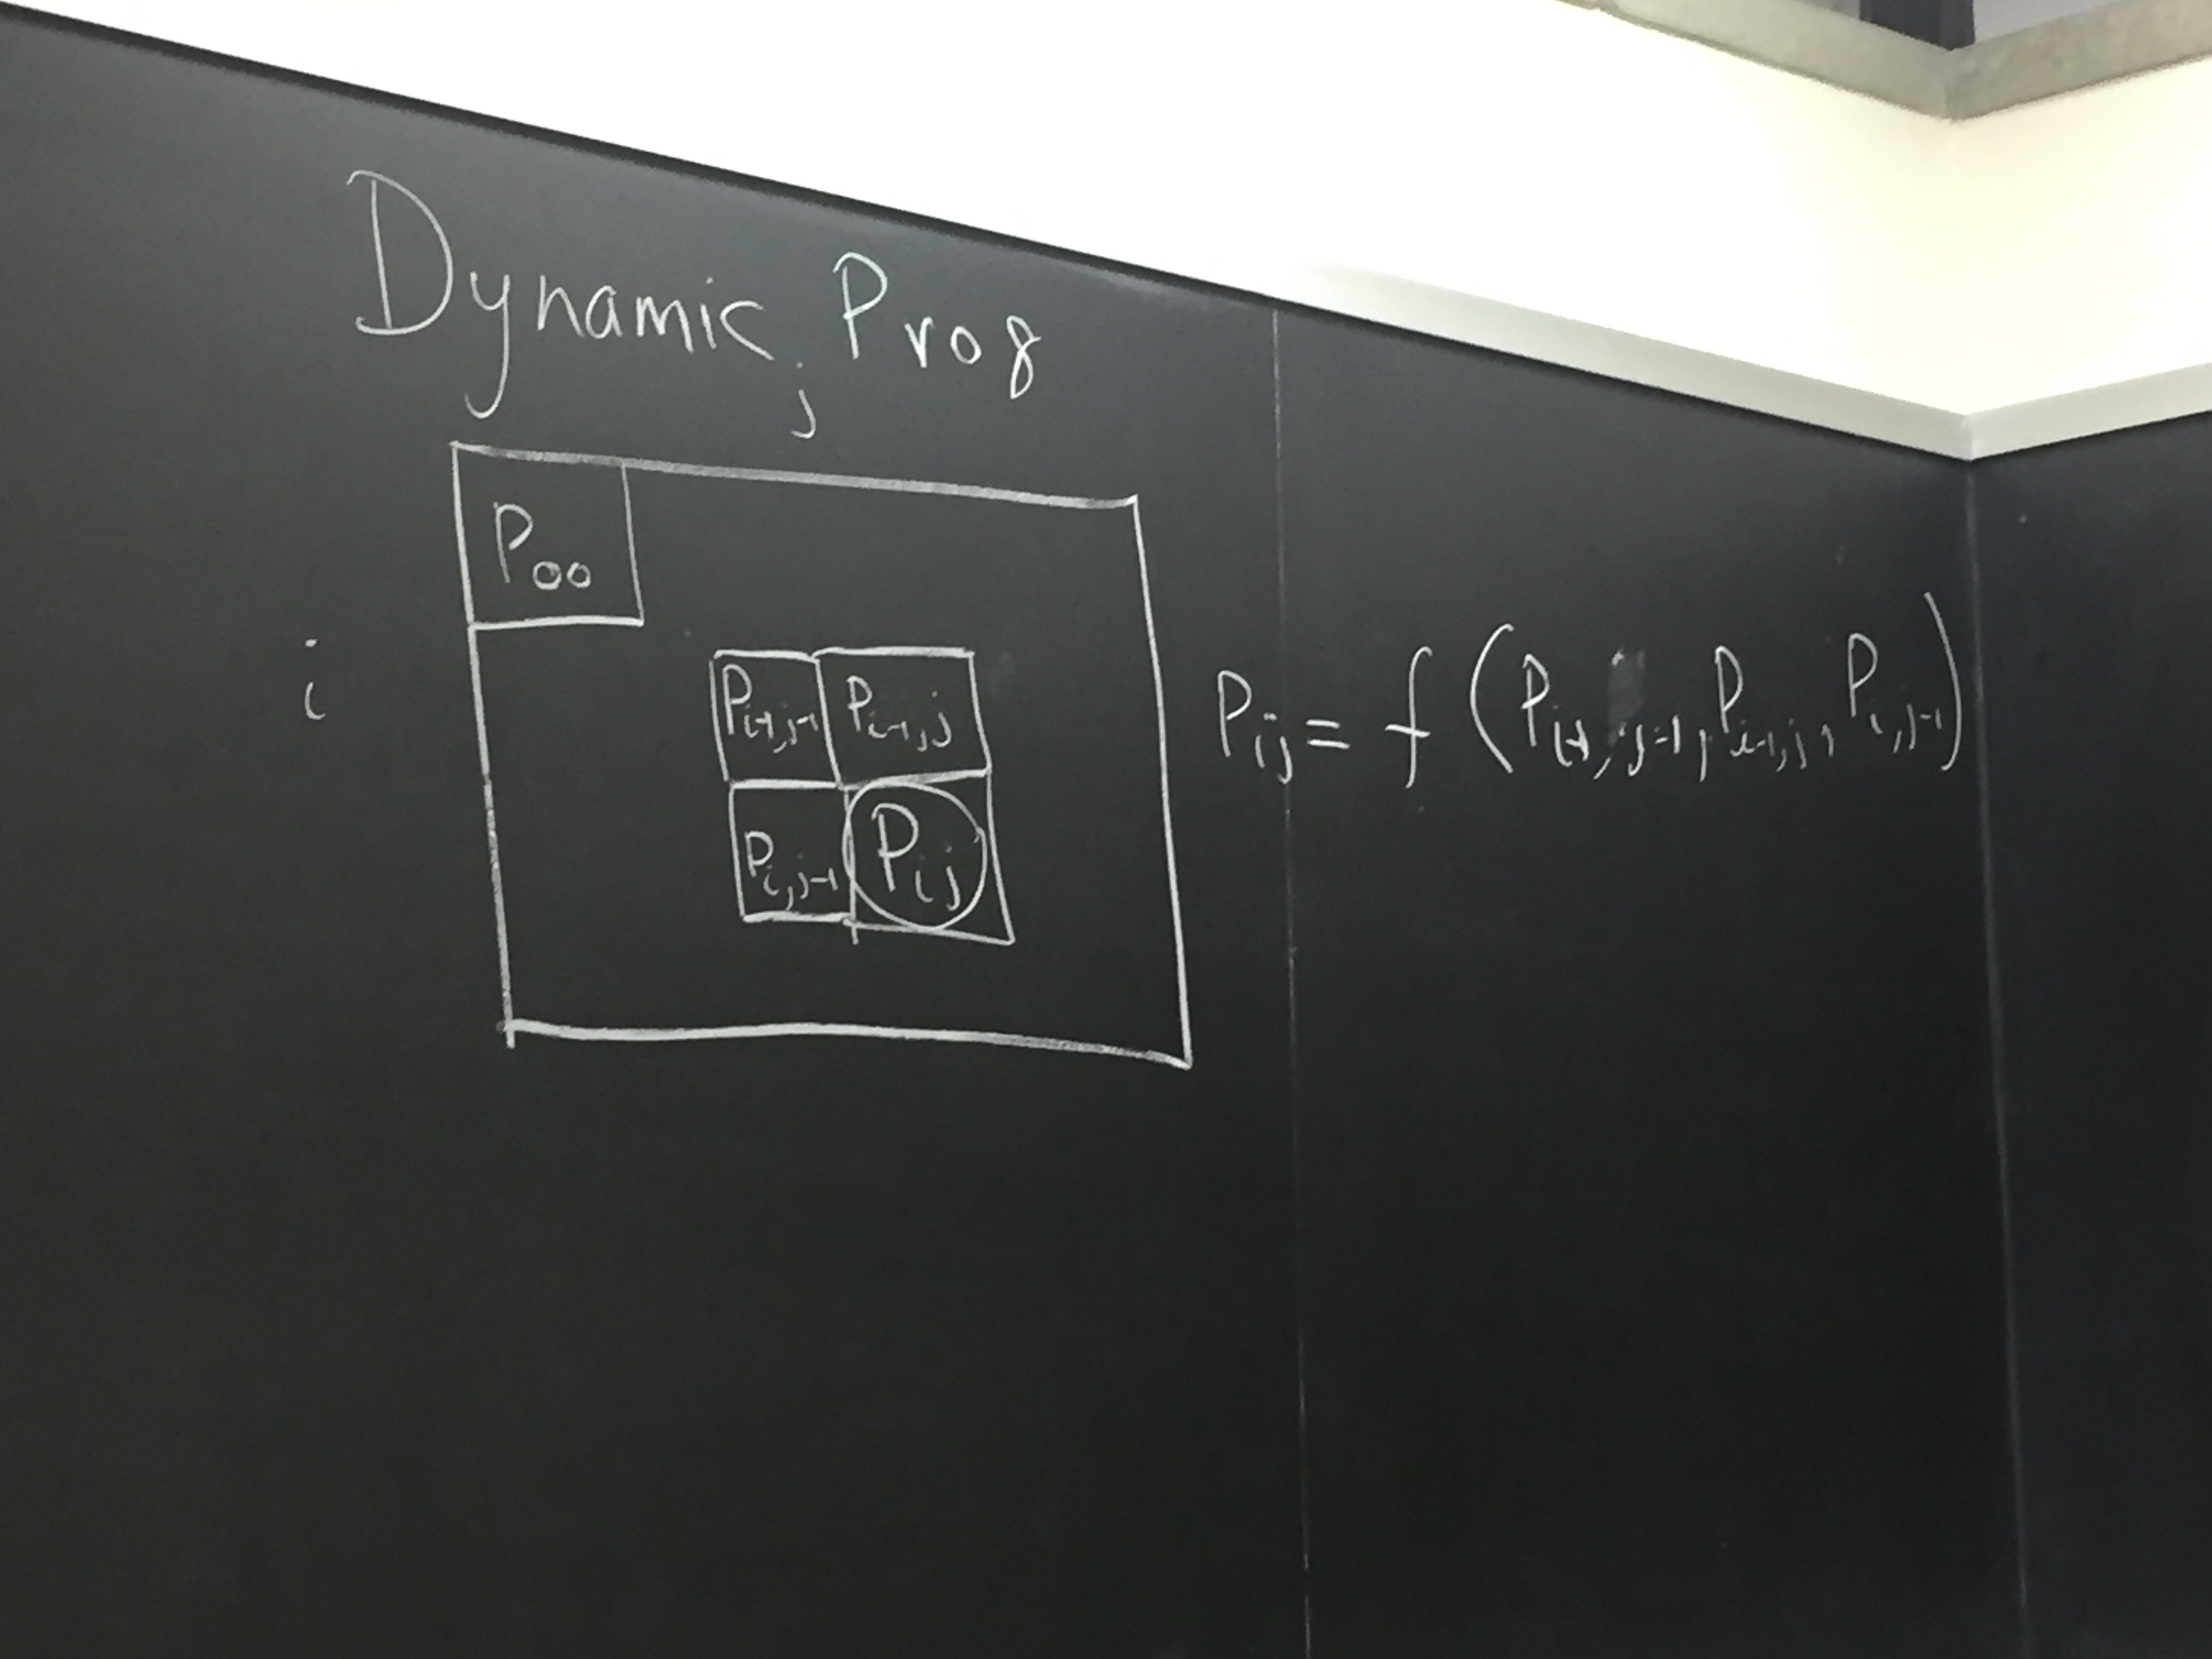 Dynamic Prog
j
P00
i
Pi-1,j-1 Pi-1,j
Pij = f(Pi-1,j-1, Pi-1,j, Pi,j-1)
Pi,j-1 Pij